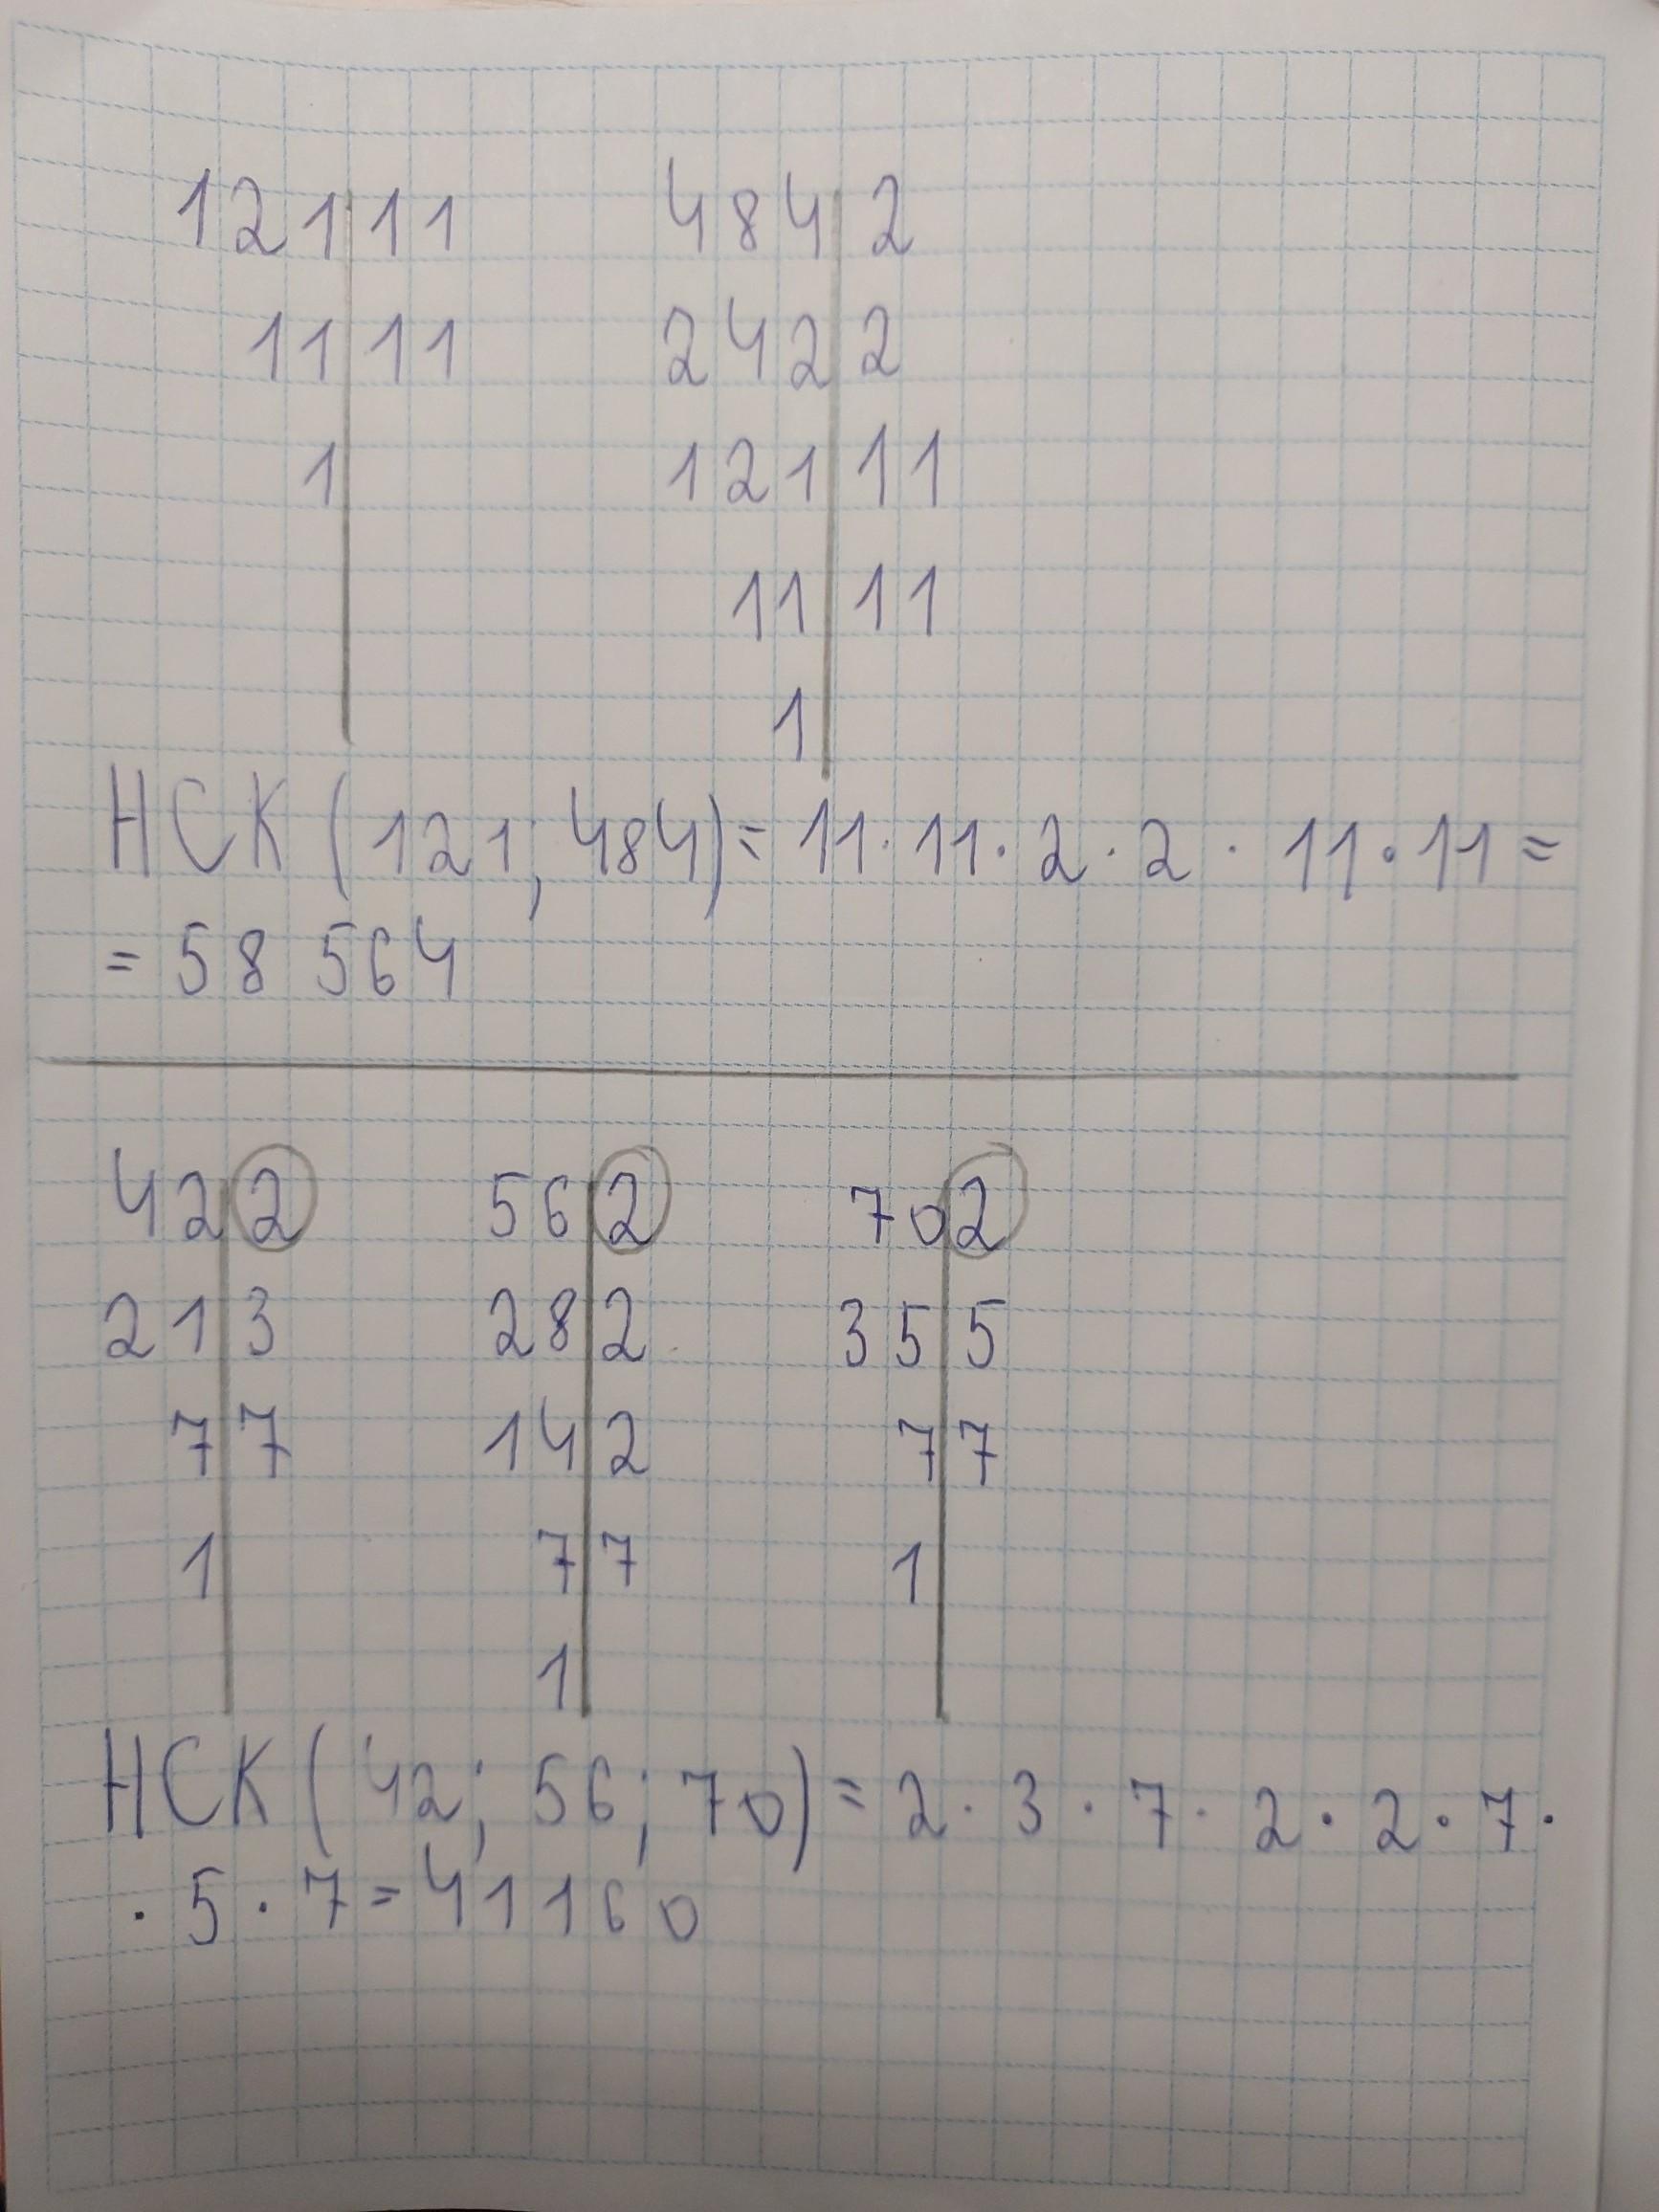 121 | 11 484 | 2
11 | 11 242 | 2
1 | 121 | 11
11 | 11
1
НСК (121; 484) = 11 · 11 · 2 · 2 · 11 · 11 =
= 58 564
42 | 2 56 | 2 70 | 2
21 | 3 28 | 2 35 | 5
7 | 7 14 | 2 7 | 7
1 | 7 | 7 1 |
1 |
НСК (42; 56; 70) = 2 · 3 · 7 · 2 · 2 · 7 ·
· 5 · 7 = 41160